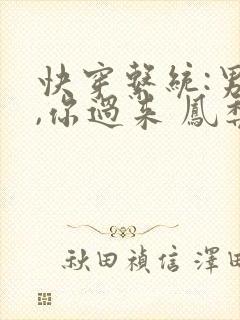 快穿繫統:男
,你過來 鳳梨
秋田禎信 澤田